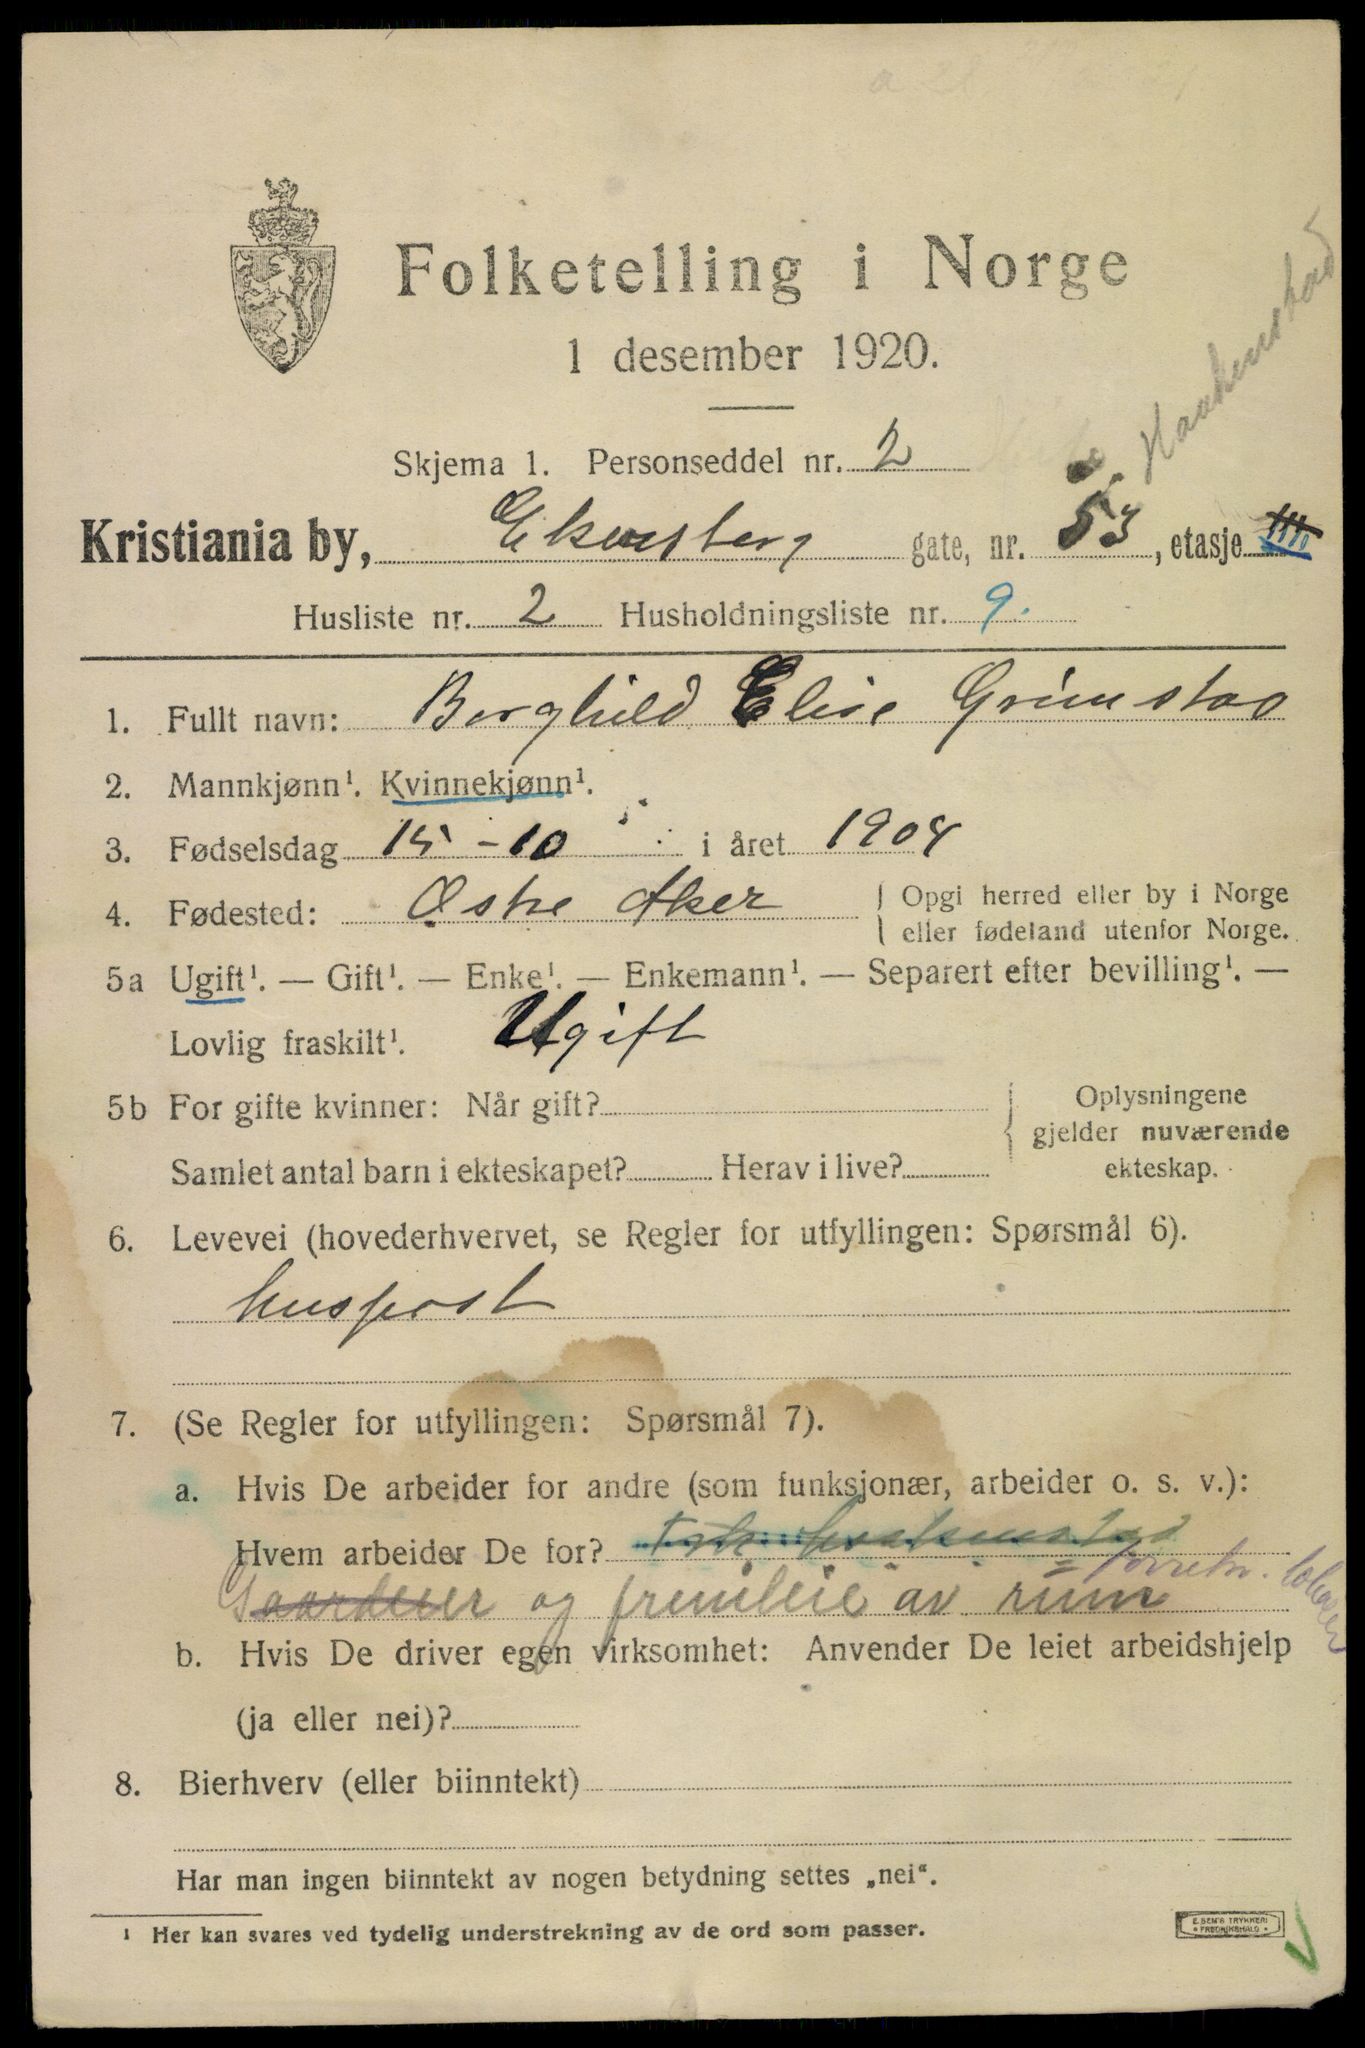 Folketelling i Norge
1 desember 1920.
Skjema 1. Personseddel nr. 2
Haakenstad
Kristiania by, Ekensberg gate, nr. 53, etasje
Husliste nr. 2 Husholdningsliste nr. 9.
1. Fullt navn: Borghild Elise Grimstad
2. Mannkjønn¹. Kvinnekjønn¹.
3. Fødselsdag 15-10 i året 1904
4. Fødested: Østre Aker { Opgi herred eller by i Norge
eller fødeland utenfor Norge.
5a Ugift¹. — Gift¹. — Enke¹. — Enkemann¹. — Separert efter bevilling¹. —
Lovlig fraskilt¹. Ugift
5b For gifte kvinner: Når gift? { Oplysningene
gjelder nuværende
Samlet antal barn i ekteskapet? Herav i live? ekteskap.
6. Levevei (hovederhvervet, se Regler for utfyllingen: Spørsmål 6).
huspost
7. (Se Regler for utfyllingen: Spørsmål 7).
a. Hvis De arbeider for andre (som funksjonær, arbeider o. s. v.):
Hvem arbeider De for?
Gaardeier og fremleie av rum
b. Hvis De driver egen virksomhet: Anvender De leiet arbeidshjelp
(ja eller nei)?
8. Bierhverv (eller biinntekt)
Har man ingen biinntekt av nogen betydning settes „nei“.
¹ Her kan svares ved tydelig understrekning av de ord som passer.
E. SEM'S TRYKKERI
* FREDRIKSHALD *